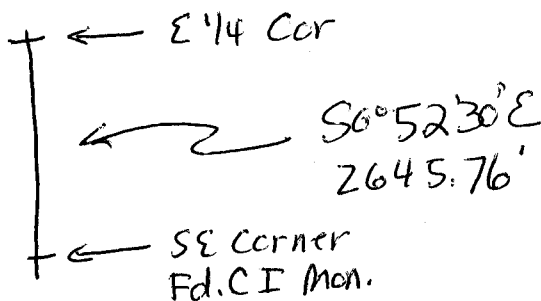 E 1/4 Cor
S0°52'30"E
2645.76'
SE Corner
Fd. C I Mon.